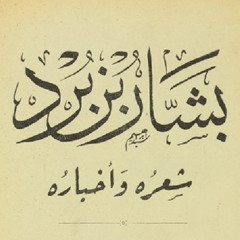 بشار بن برد
شعره وأخباره